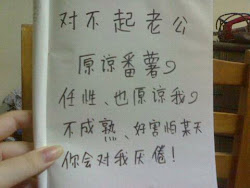 对不起老公
原谅番薯
任性、也原谅我
不成熟、好害怕某天
你会对我厌倦！